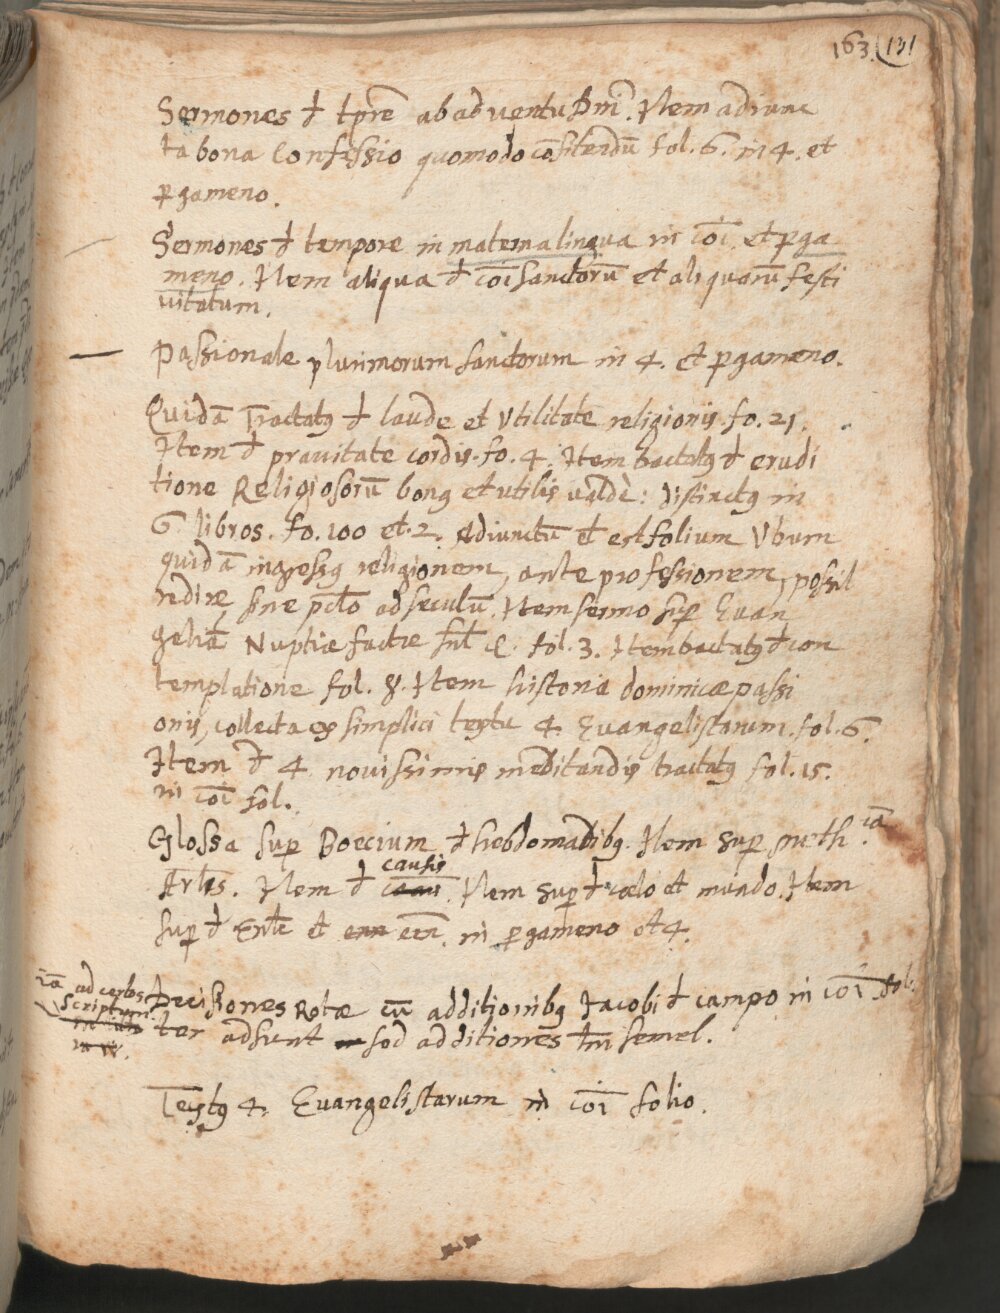 163. (131
Sermones đ tp̄re ab adventu Dn̄i. Item adiunc
ta bona Confessio quomodo cōfitendū fol. 6. in 4. et
ꝑgameno.
Sermones đ tempore in materna lingua in cōi et ꝑga
meno. Item aliqua đ cōi Sanctorū et aliquarū festi
vitatum.
Passionale plurimorum sanctorum in 4. et ꝑgameno.
Quidā Tractatꝰ đ laude et Vtilitate religionis. fo. 21.
Item đ prauitate cordis. fo. 4. Item tractatꝰ đ erudi
tione Religiosorū bonꝰ et utilis valdè: distinctꝰ in
6 libros. fo. 100 et. 2. Adiunctū et̄ est folium Vtrum
quidā ingressꝰ religionem, ante professionem, possit
redire, sine pctō ad seculū. Item sermo suꝑ Euan
geliū Nuptiæ factæ sūt &. fol. 3. Item tractatꝰ đ con
templatione fol. 8. Item historia dominicæ passi
onis, collecta ex simplici textu 4 Euangelistarum. fol. 6.
Item đ 4 novissimis meditandis tractatꝰ fol. 15.
in cōi fol.
Glossa suꝑ Boecium đ hebdomadibꝰ. Item suꝑ meth.ca
Arl̄is. Item đ causis. Item suꝑ đ cœlo et mundo. Item
suꝑ đ Ente et eēn. in ꝑgameno et 4.
Decisiones Rotæ cū additionibꝰ Jacobi đ campo in cōi fol.
ad cerbos
Scriptum
ter adsunt sed additiones tm̄ semel.
Textꝰ 4. Euangelistarum in cōi folio.